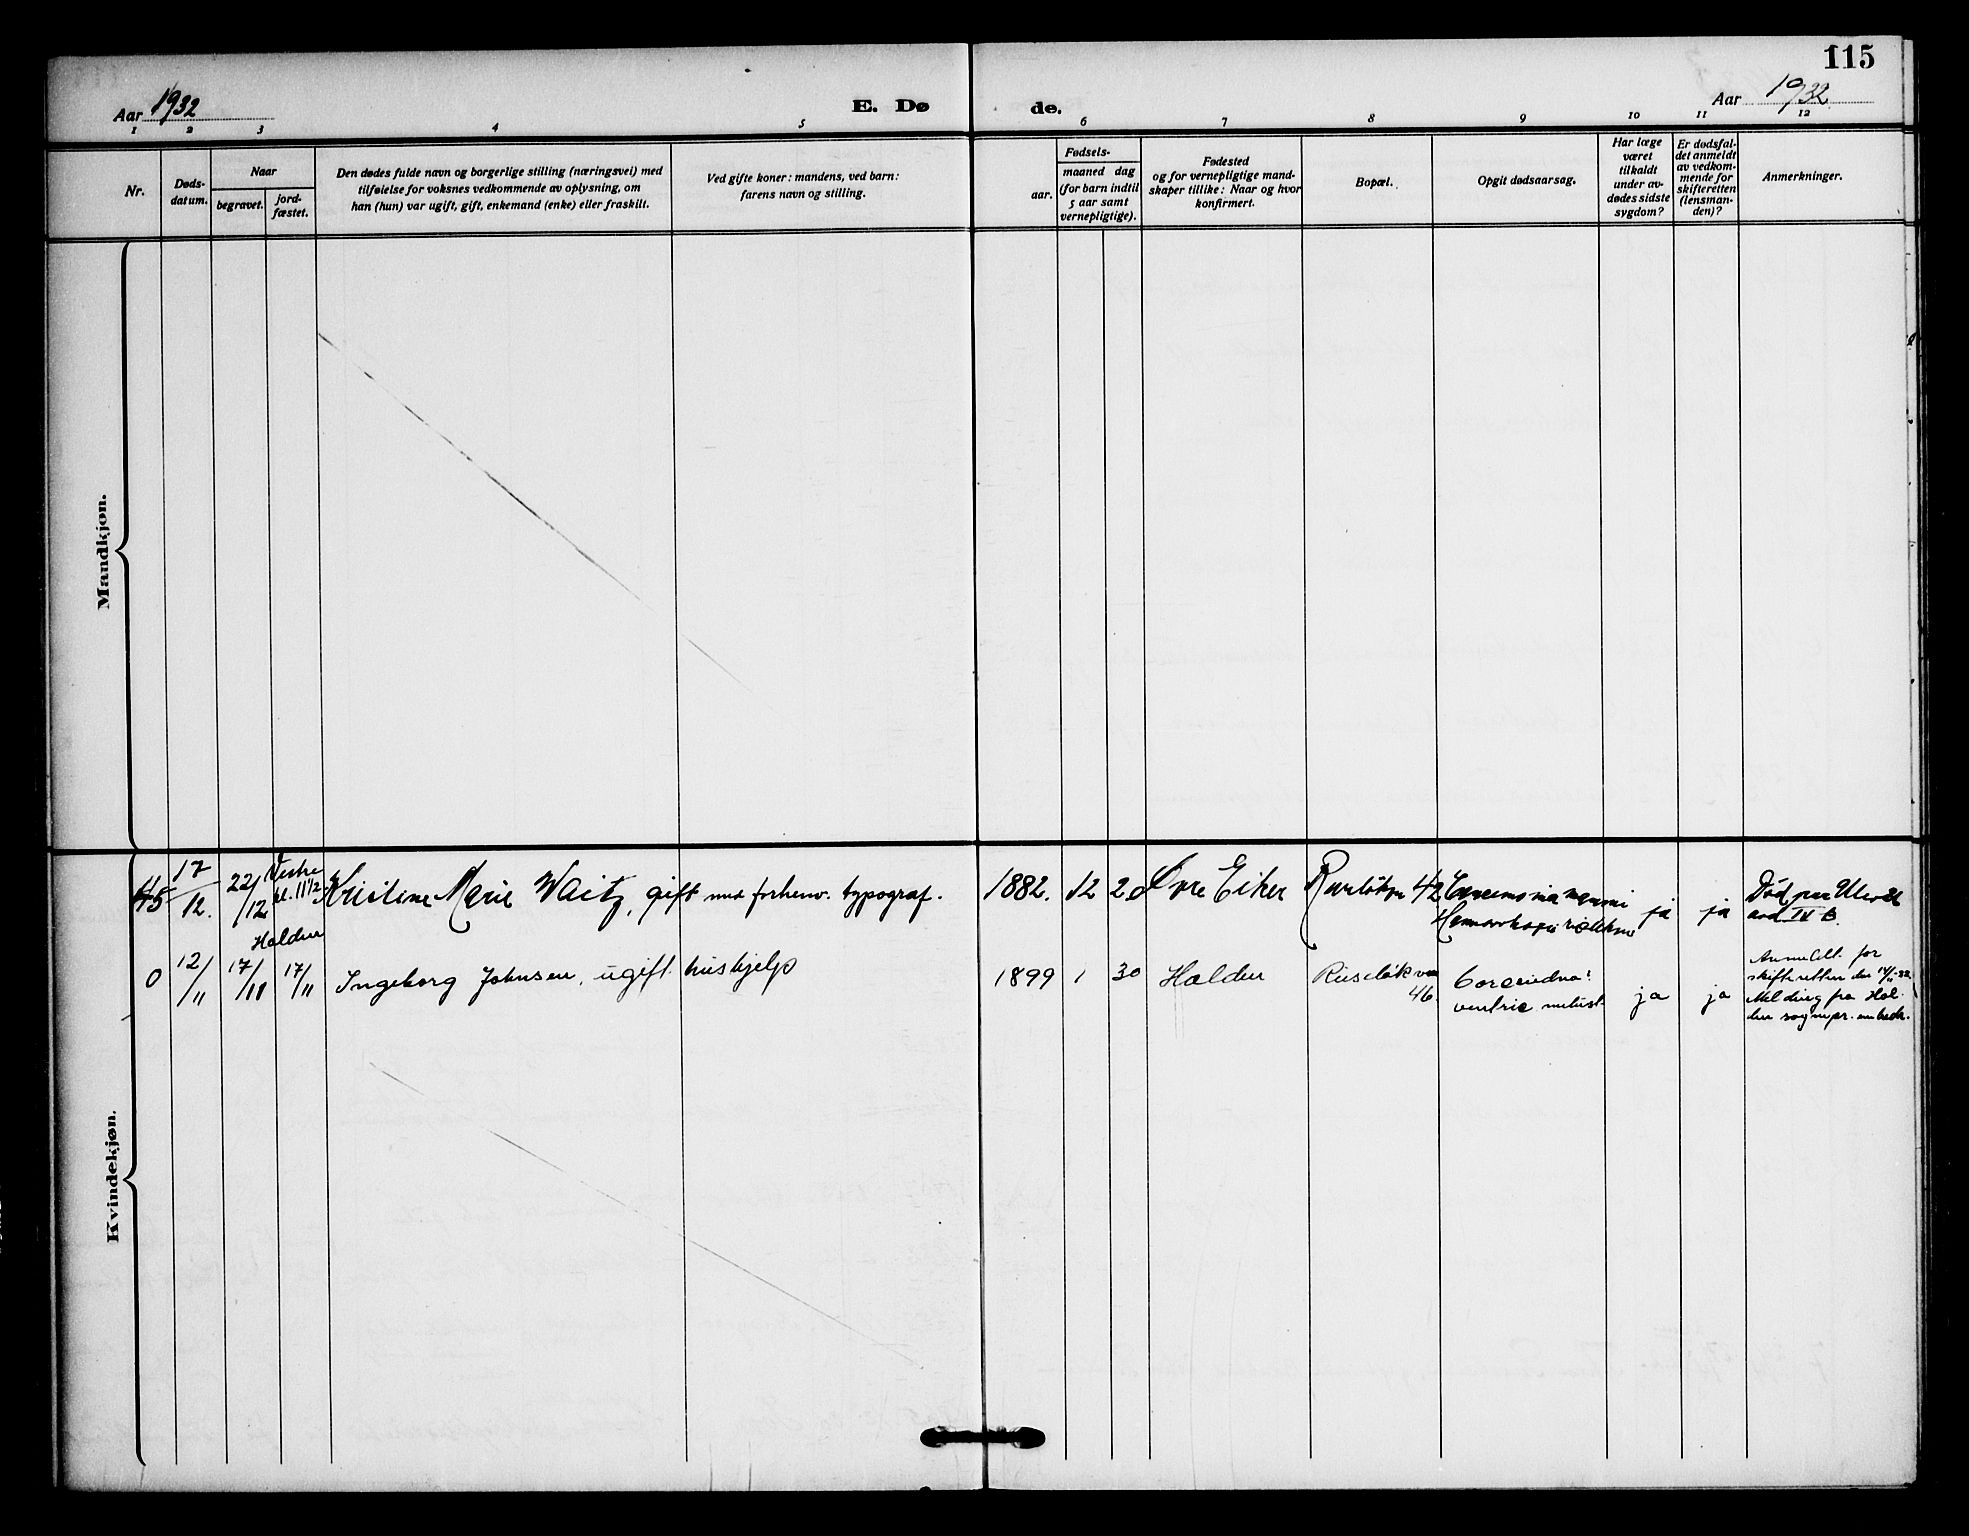 115
Aar 1932
E. Dø
de.
Aar 1932
1 2 3 4 5 6 7 8 9 10 11 12
Nr.
Døds-
datum.
Naar
begravet.
jord-
fæstet.
Den dødes fulde navn og borgerlige stilling (næringsvei) med
tilføielse for voksnes vedkommende av oplysning, om
han (hun) var ugift, gift, enkemand (enke) eller fraskilt.
Ved gifte koner: mandens, ved barn:
farens navn og stilling.
Fødsels-
aar.
maaned dag
(for barn indtil
5 aar samt
vernepligtige).
Fødested
og for vernepligtige mand-
skaper tillike: Naar og hvor
konfirmert.
Bopæl.
Opgit dødsaarsag.
Har læge
været
tilkaldt
under av-
dødes sidste
sygdom?
Er dødsfal-
det anmeldt
av vedkom-
mende for
skifteretten
(lensman-
den)?
Anmerkninger.
Mandkjøn.
Kvindekjøn.
45
17/12.
22/12
Vestre
kl. 11 1/2
Kristine Marie Waitz, gift med forhenv. typograf.
1882. 12 20
Øvre Eiker
42
ja
ja
Død paa
avd IV B.
Halden
0
12/11
17/11
17/11
Ingeborg Johnsen, ugift hushjelp
1899 1 30
Halden
46
ja
ja
Anmeldt for
skifteretten den
Melding fra Hal-
den sognepr. embede.